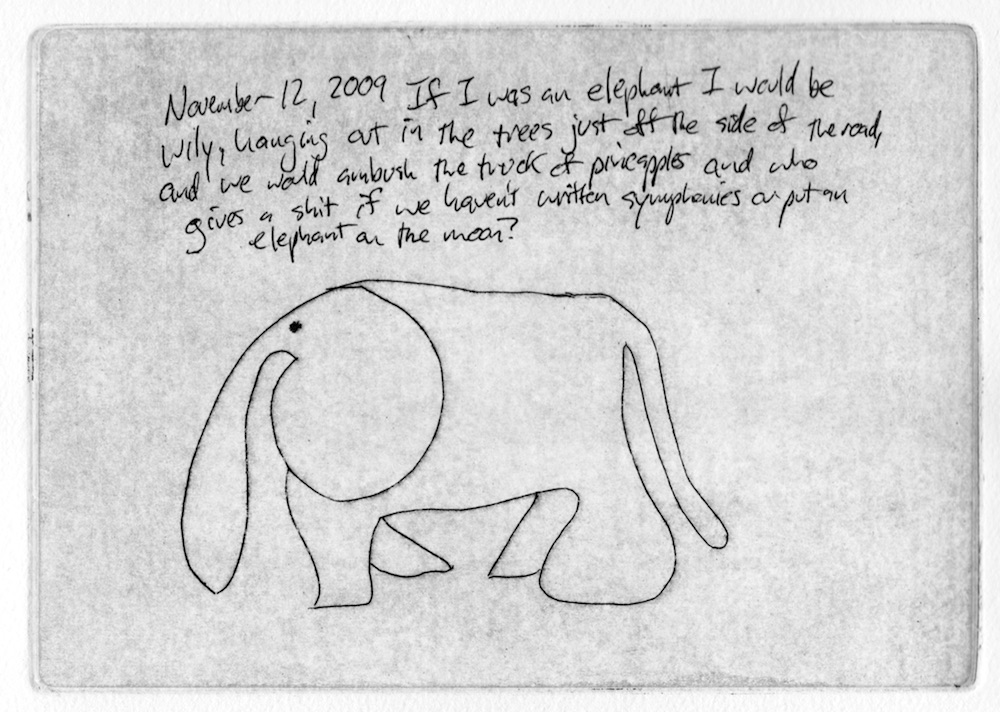 November 12, 2009 If I was an elephant I would be
wily, hanging out in the trees just off the side of the road,
and we would ambush the truck of pineapples and who
gives a shit if we haven't written symphonies or put an
elephant on the moon?